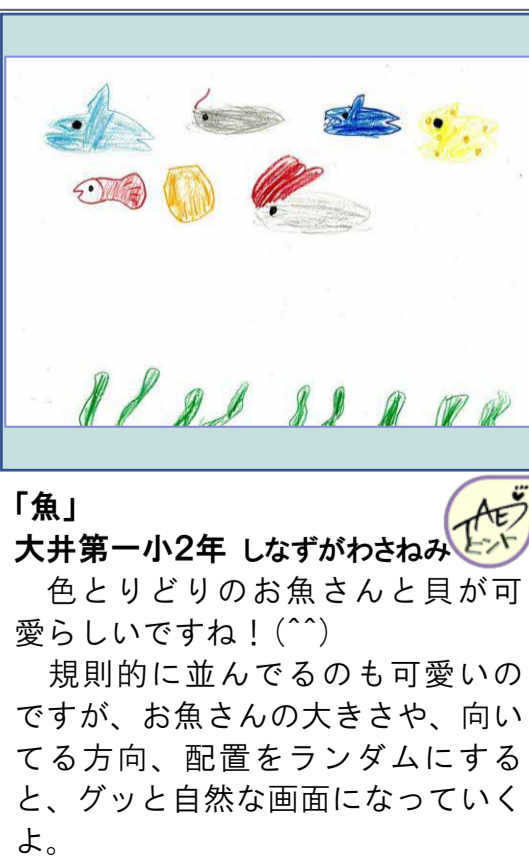 「魚」
TAEピント
大井第一小2年 しなずがわさねみ
　色とりどりのお魚さんと貝が可
愛らしいですね！(^^)
　規則的に並んでるのも可愛いの
ですが、お魚さんの大きさや、向い
てる方向、配置をランダムにする
と、グッと自然な画面になっていく
よ。